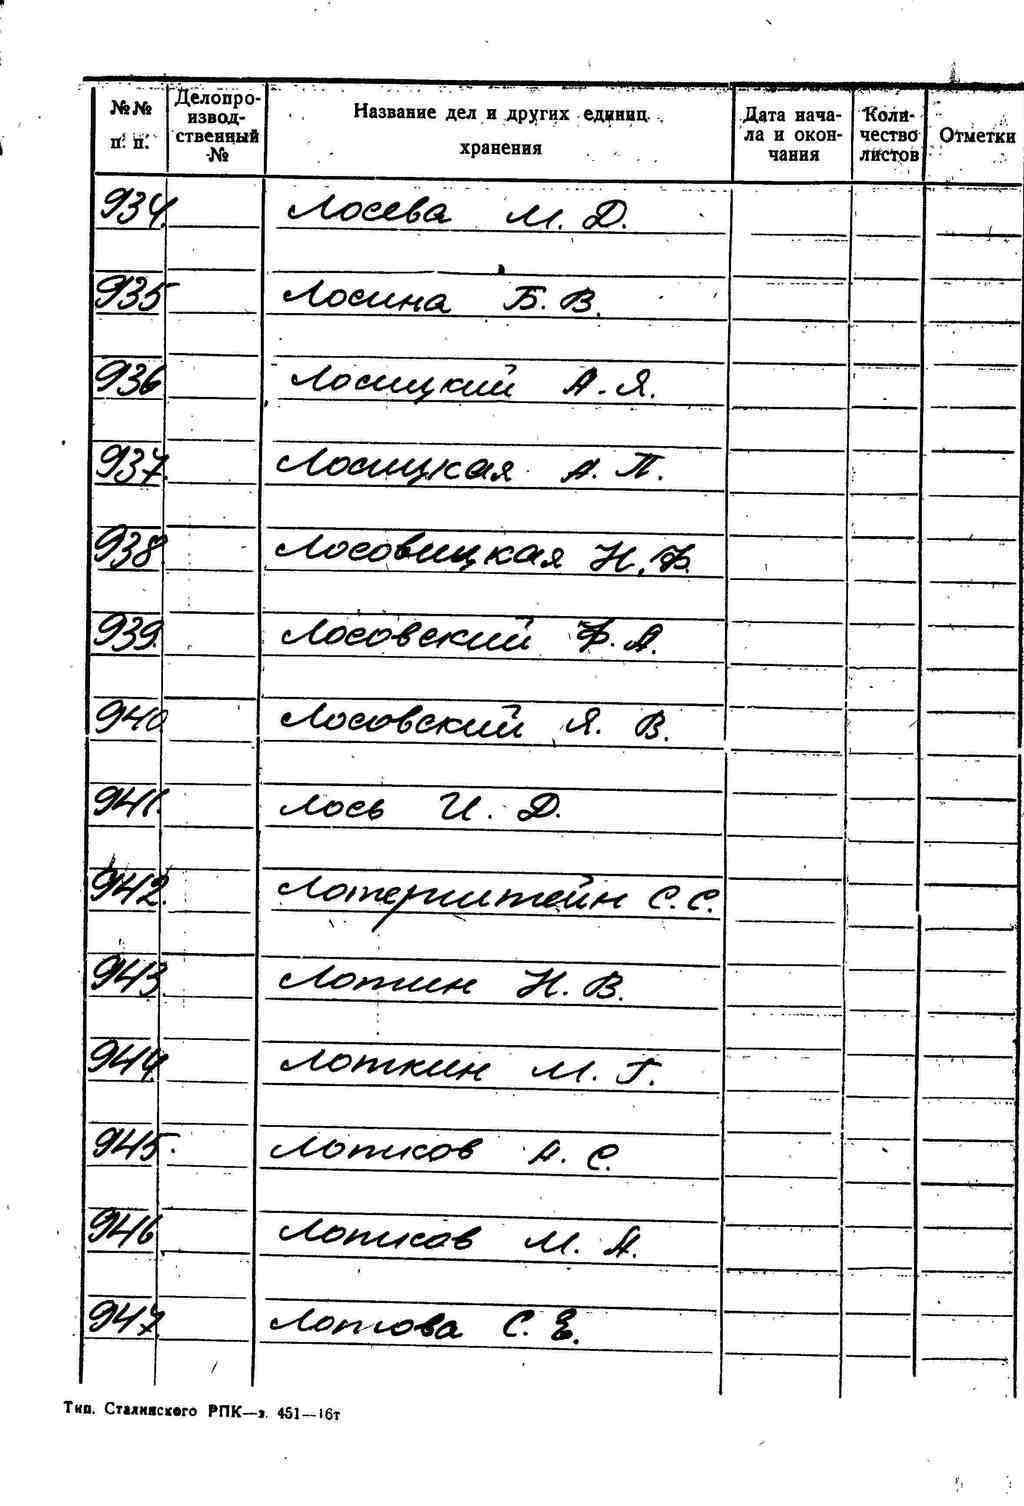 №№ п. п. Делопроизводственный № Название дел и других единиц хранения Дата начала и окончания Количество листов Отметки
934. Лосева М. Д.
935 Лосина Б. В.
936 Лосицкий А. Я.
937. Лосицкая А. П.
938. Лосовицкая Н. Ф.
939. Лосовский Ф. А.
940 Лосовский Я. В.
941. Лось И. Д.
942. Лотерштейн С. С.
943. Лотин Н. В.
944. Лоткин М. Г.
945. Лотков А. С.
946 Лотков М. А.
947. Лотова С. Е.
Тип. Сталинского РПК—з. 451—16т